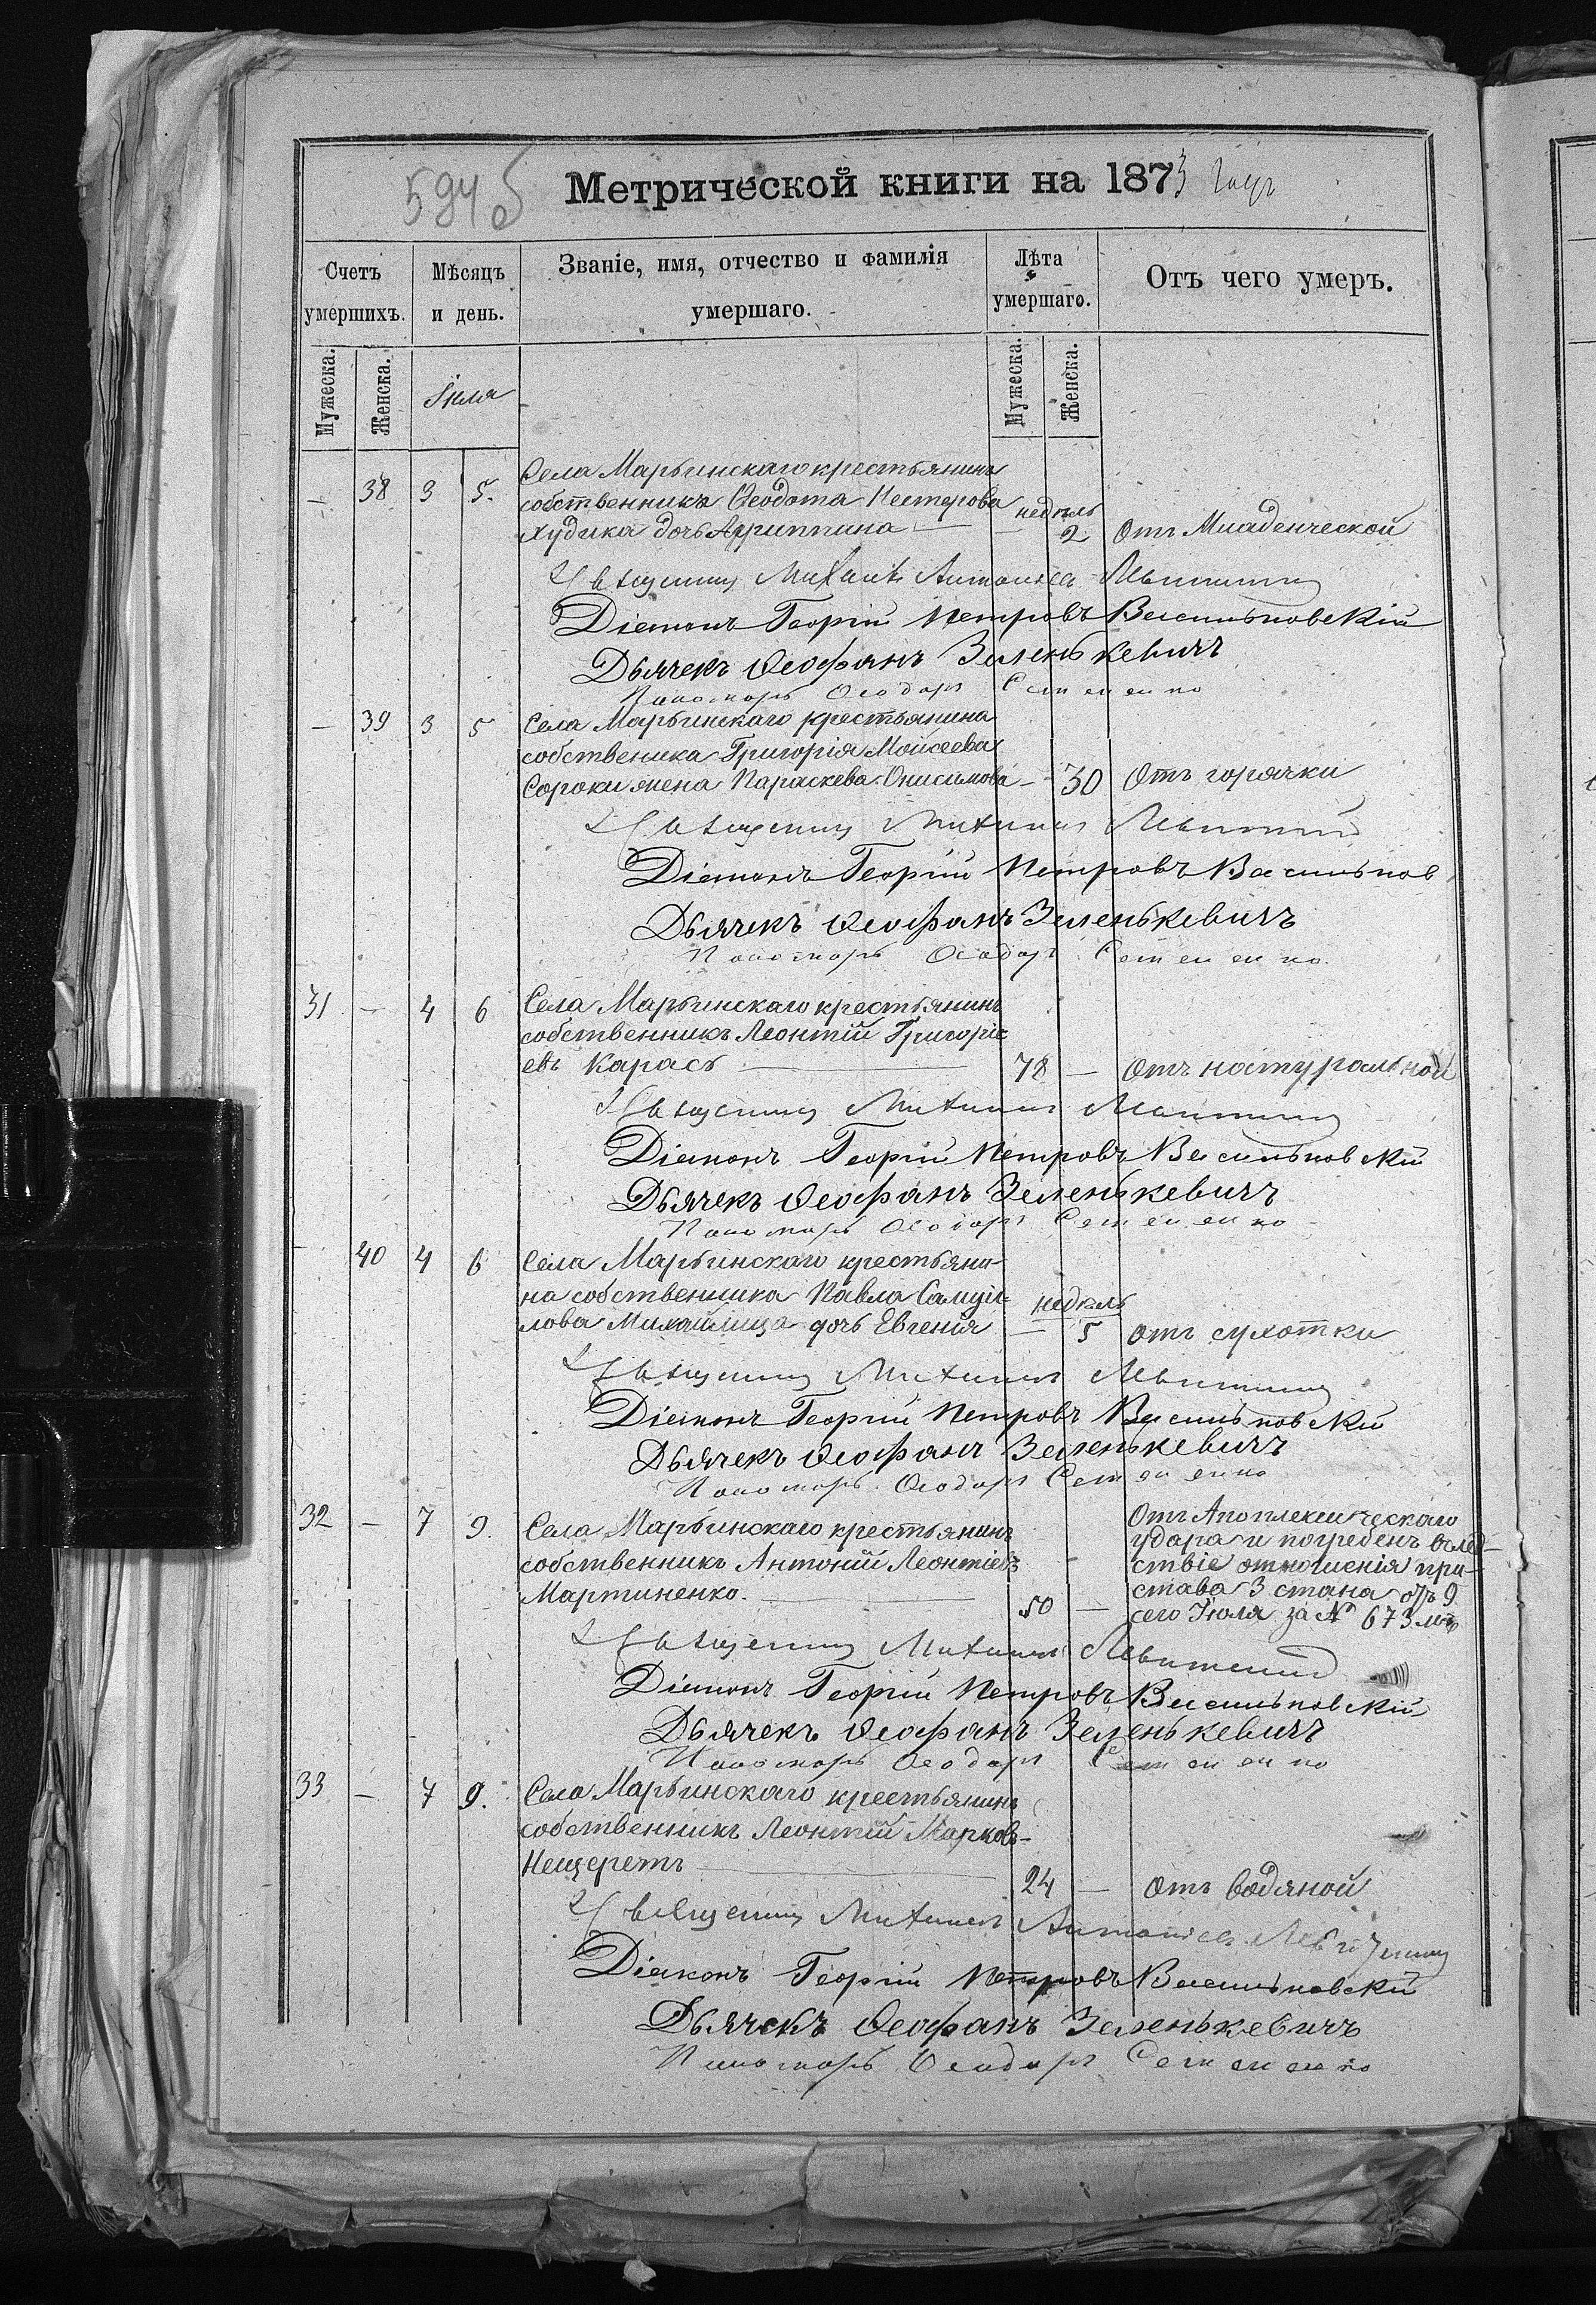 594 б
Метрической книги на 1873 годъ
Счетъ умершихъ.
Мѣсяцъ и день.
Званіе, имя, отчество и фамилія умершаго.
Лѣта умершаго.
Отъ чего умеръ.
Мужеска.
Женска.
Іюля
Мужеска.
Женска.
Села Марьинскаго крестьянина
— 38 3 5. собственника Ѳеодота Нестерова недѣль
Худика дочь Агриппина — — 2 Отъ Младенческой
Священникъ Михаилъ Антоніевъ Левитскій
Діаконъ Георгій Петровъ Васильковскій
Дьячекъ Ѳеофанъ Зеленькевичъ
Пономарь Ѳеодоръ Семененко
— 39 3 5 Села Марьинскаго крестьянина
собственика Григорія Мойсеева
Сороки жена Параскева Онисимова — 30 Отъ горячки
Священникъ Михаилъ Левитскій
Діаконъ Георгій Петровъ Васильков
Дьячекъ Ѳеофанъ Зеленькевичъ
Пономарь Ѳеодоръ Семененко
31 — 4 6 Села Марьинскаго крестьянинъ
собственникъ Леонтій Григоріе
евъ Карась — 78 — Отъ натуральной
Священникъ Михаилъ Левитскій
Діаконъ Георгій Петровъ Васильковскій
Дьячекъ Ѳеофанъ Зеленькевичъ
Пономарь Ѳеодоръ Семененко
40 4 6 Села Марьинскаго крестьяни-
на собственника Павла Самуи- недѣль
лова Михайлица дочь Евгенія — 5 отъ сухотки
Священникъ Михаилъ Левитскій
Діаконъ Георгій Петровъ Васильковскій
Дьячекъ Ѳеофанъ Зеленькевичъ
Пономарь Ѳеодоръ Семененко
32 — 7 9. Села Марьинскаго крестьянинъ
собственникъ Антоній Леонтіевъ
Мартиненко. — 50 —
Отъ Апоплексическаго
удара и погребенъ вслед-
ствіе отношенія при-
става 3 стана отъ 9
сего Іюля за № 673мъ
Священникъ Михаилъ Левитскій
Діаконъ Георгій Петровъ Васильковскій
Дьячекъ Ѳеофанъ Зеленькевичъ
Пономарь Ѳеодоръ Семененко
33 — 7 9. Села Марьинскаго крестьянинъ
собственникъ Леонтій Марковъ-
Нещеретъ — 24 — Отъ водяной
Священникъ Михаилъ Антоніевъ Левитскій
Діаконъ Георгій Петровъ Васильковскій
Дьячекъ Ѳеофанъ Зеленькевичъ
Пономарь Ѳеодоръ Семененко